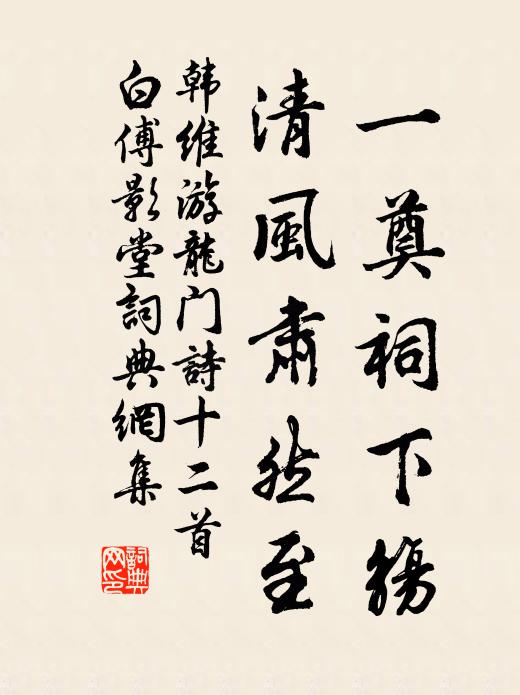 一奠祠下觞
清風肅然至
韩維游龍门詩十二首
白傅影堂詞典網集
詞典网印